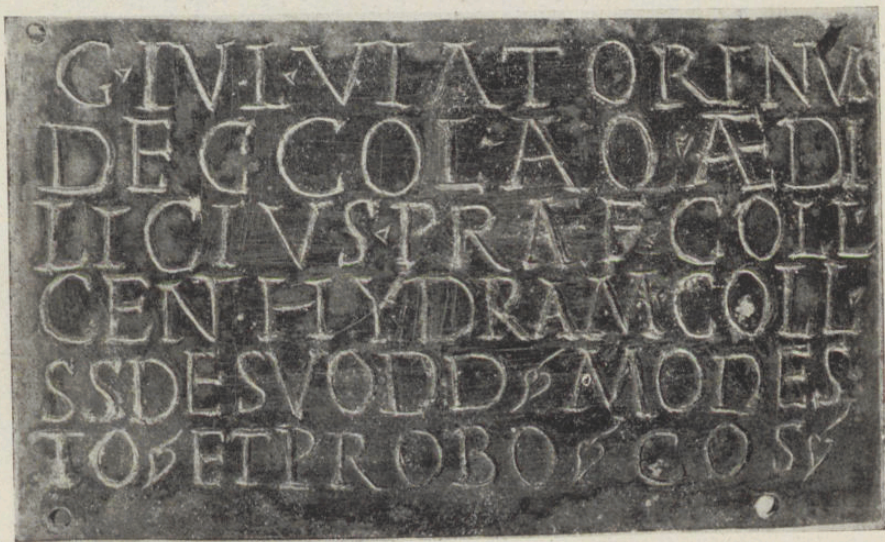 G·IVL·VIATORINVS
DEC COL·AQ·ÆDI
LICIVS·PRAEF COLL
CEN·HYDRAM·COLL·
SSDESVODD MODES
TO ET PROBO COS